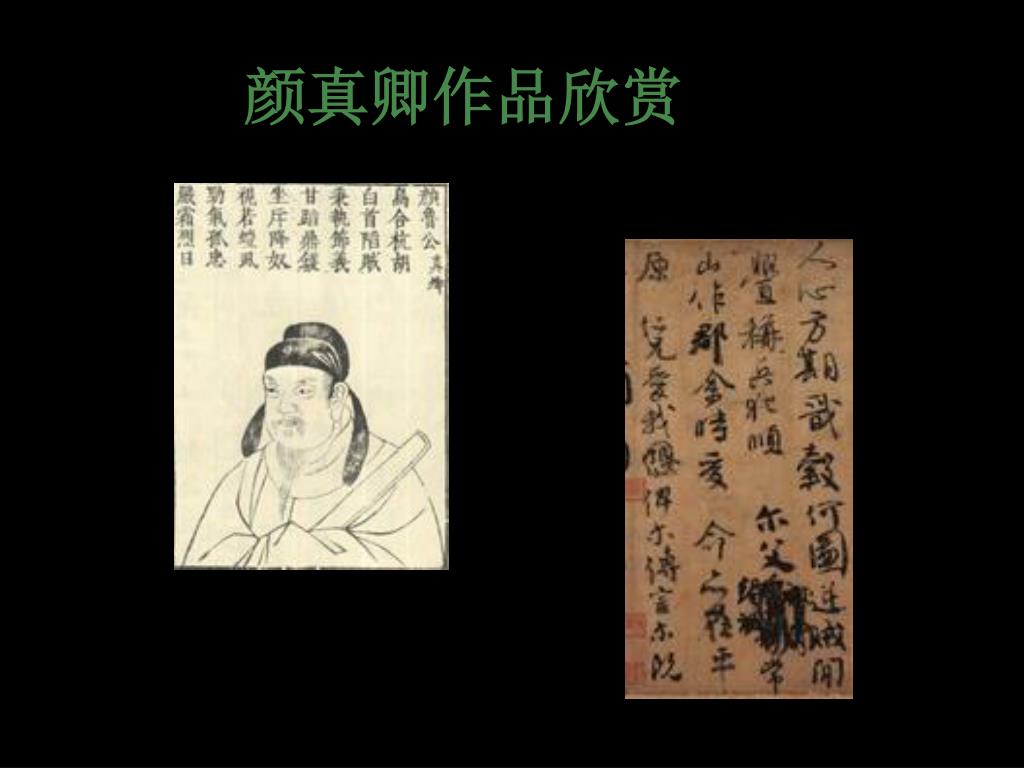 颜真卿作品欣赏
顔魯公真卿
烏合抗胡
白首陷賊
秉執節義
甘蹈鼎鑊
坐斥降奴
視若蟣虱
勁氣孤忠
嚴霜烈日
人心方期戩穀何圖逆賊閒
釁稱兵犯順 尔父 常
山作郡余時受 命亦在平
原 仁兄愛我俾尔傳言尔既